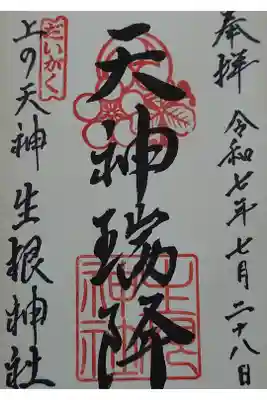 奉拝 令和七年七月二十八日
天神瑞降
だいがく
上の天神 生根神社
生根神社